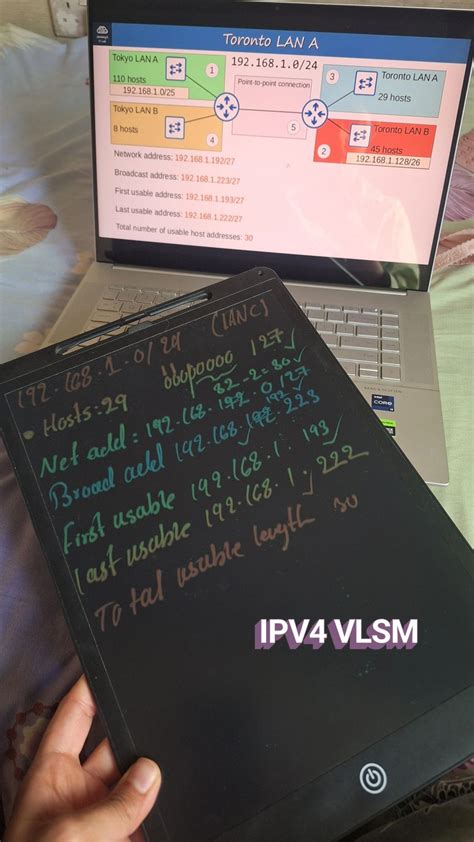 Toronto LAN A
Tokyo LAN A
110 hosts
192.168.1.0/25
1
192.168.1.0/24
Point-to-point connection
3
Toronto LAN A
29 hosts
Tokyo LAN B
8 hosts
4
5
Toronto LAN B
45 hosts
2
192.168.1.128/26
Network address: 192.168.1.192/27
Broadcast address: 192.168.1.223/27
First usable address: 192.168.1.193/27
Last usable address: 192.168.1.222/27
Total number of usable host addresses: 30
192.168.1.0/29
Hosts:29
127
32-2=30
Net add: 192.168.192.0/27
Broad add 192.168.192.223
First usable 192.168.1.193
Last usable 192.168.1.222
Total usable length 30
IPV4 VLSM
CORE